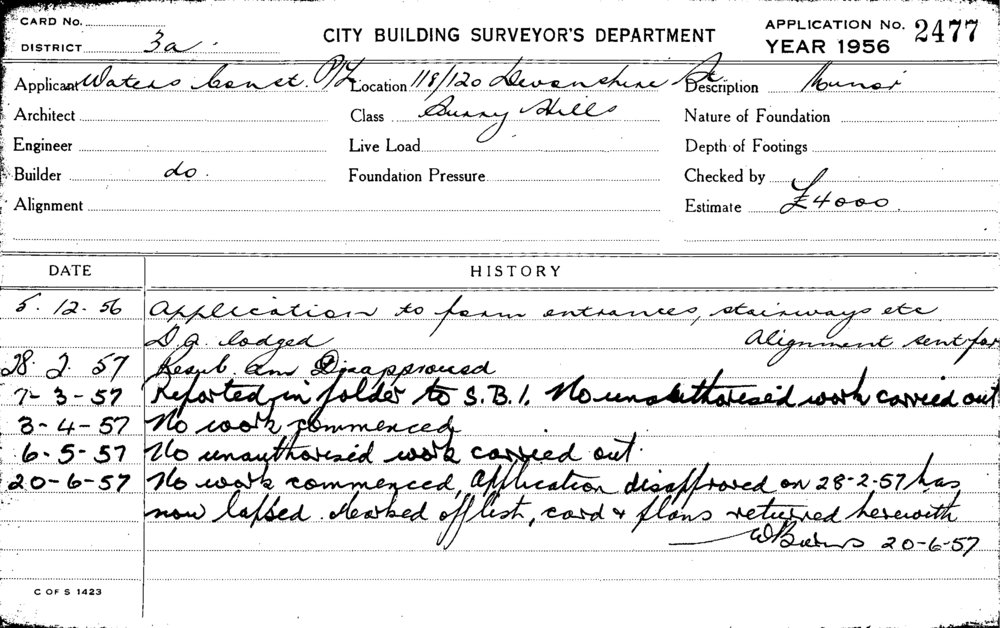 CARD No.
DISTRICT 3a.
CITY BUILDING SURVEYOR'S DEPARTMENT
APPLICATION No. 2477
YEAR 1956
Applicant Waters Const. P/L Location 118/120 Devonshire St. Description Minor
Architect Class Surry Hills Nature of Foundation
Engineer Live Load Depth of Footings
Builder do. Foundation Pressure Checked by
Alignment Estimate £4000.
DATE HISTORY
5.12.56 Application to form entrances, stairways etc
D.A. lodged Alignment sent for
28.2.57 Resub. Am Disapproved
7-3-57 Reported in folder to S.B.I. No unauthorised work carried out
3-4-57 No work commenced
6-5-57 No unauthorised work carried out.
20-6-57 No work commenced, Application disapproved on 28-2-57 has
now lapsed. Marked off list, card & plans returned herewith
20-6-57
C OF S 1423